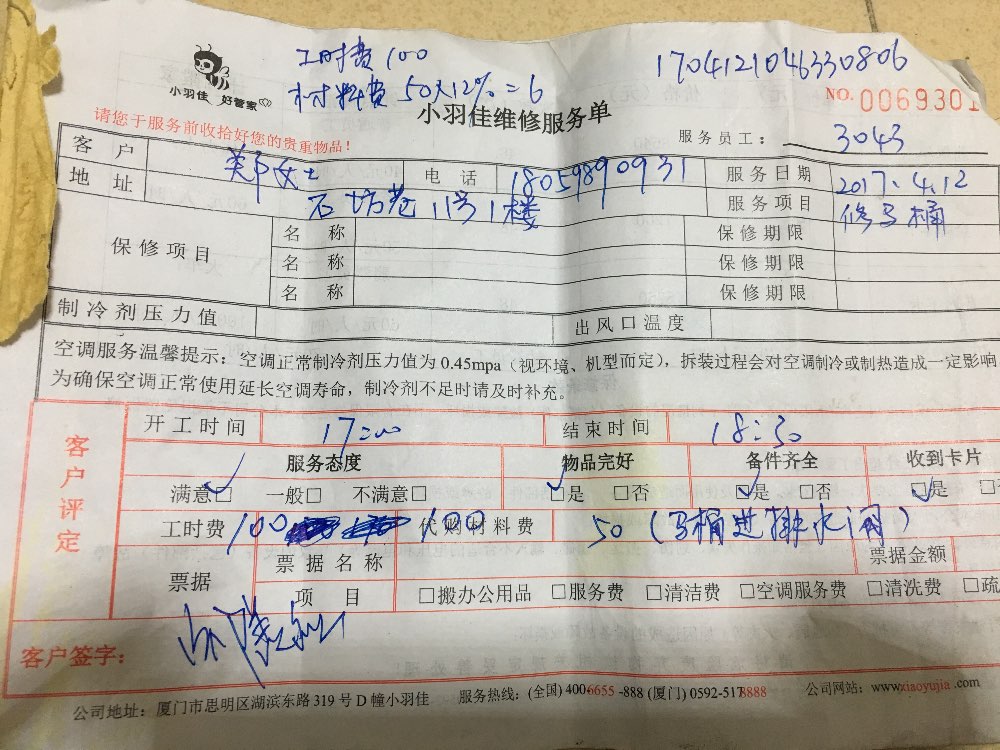 工时费 100
17041210463308​06
材料费 50×12%=6
小羽佳 好管家
小羽佳维修服务单
NO. 0069301
请您于服务前收拾好您的贵重物品！
服务员工： 3043
客户 郑女士 电话 18059890931 服务日期 2017.4.12
地址 石坊苑11号1楼 服务项目 修马桶
保修项目 名称 保修期限
名称 保修期限
名称 保修期限
制冷剂压力值 出风口温度
空调服务温馨提示：空调正常制冷剂压力值为 0.45mpa（视环境、机型而定），拆装过程会对空调制冷或制热造成一定影响
为确保空调正常使用延长空调寿命，制冷剂不足时请及时补充。
客户评定
开工时间 17:00 结束时间 18:30
服务态度 物品完好 备件齐全 收到卡片
满意□ 一般□ 不满意□ □是 □否 □是 □否 □是
工时费 100 100 代购材料费 50（马桶进排水阀）
票据 票据名称 票据金额
项目 □搬办公用品 □服务费 □清洁费 □空调服务费 □清洗费 □疏
客户签字：
公司地址：厦门市思明区湖滨东路 319 号 D 幢小羽佳 服务热线：(全国) 400-6655-888 (厦门) 0592-5178888 公司网站：www.xiaoyujia.com